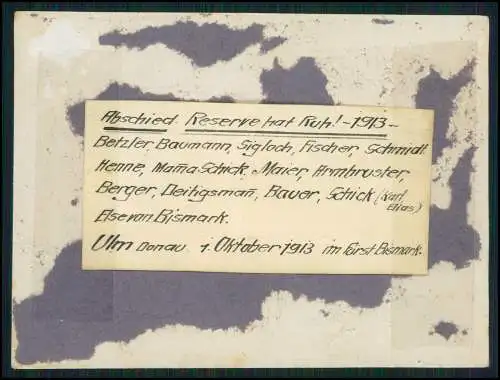 Abschied. Reserve hat Ruh! - 1913 -
Betzler, Baumann, Sigloch, Fischer, Schmidt
Henne, Mama Schick, Maier, Armbruster,
Berger, Deihigsmañ, Bauer, Schick (Karl
Elias)
Else von Bismark.
Ulm Donau 1. Oktober 1913 im Fürst Bismark.